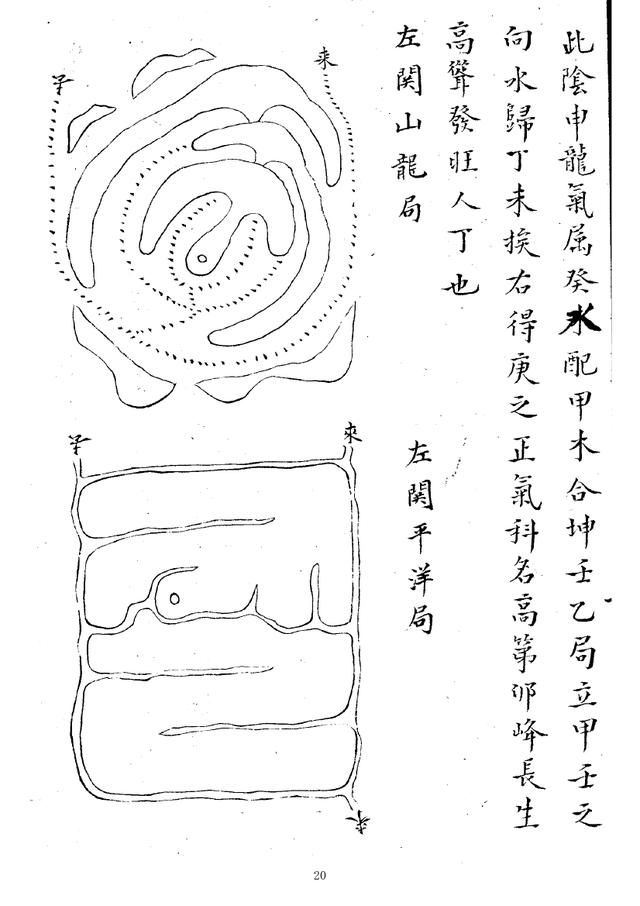 此陰申龍氣属癸水配甲木合坤壬乙局立甲壬之
向水歸丁未挨右得庚之正氣科名高第卯峰長生
高聳發旺人丁也
左関山龍局
来
子
左関平洋局
來
子
来
20